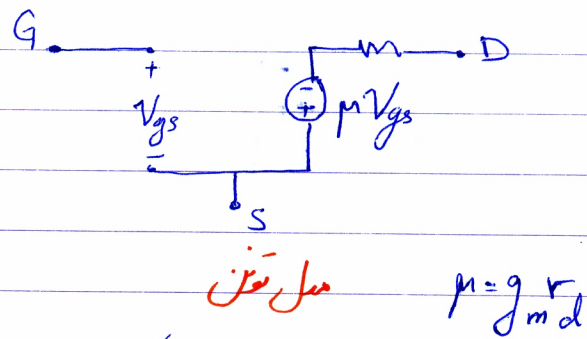 G
D
+
Vgs
-
-
+
μVgs
S
مدل تونن
μ = gm rd